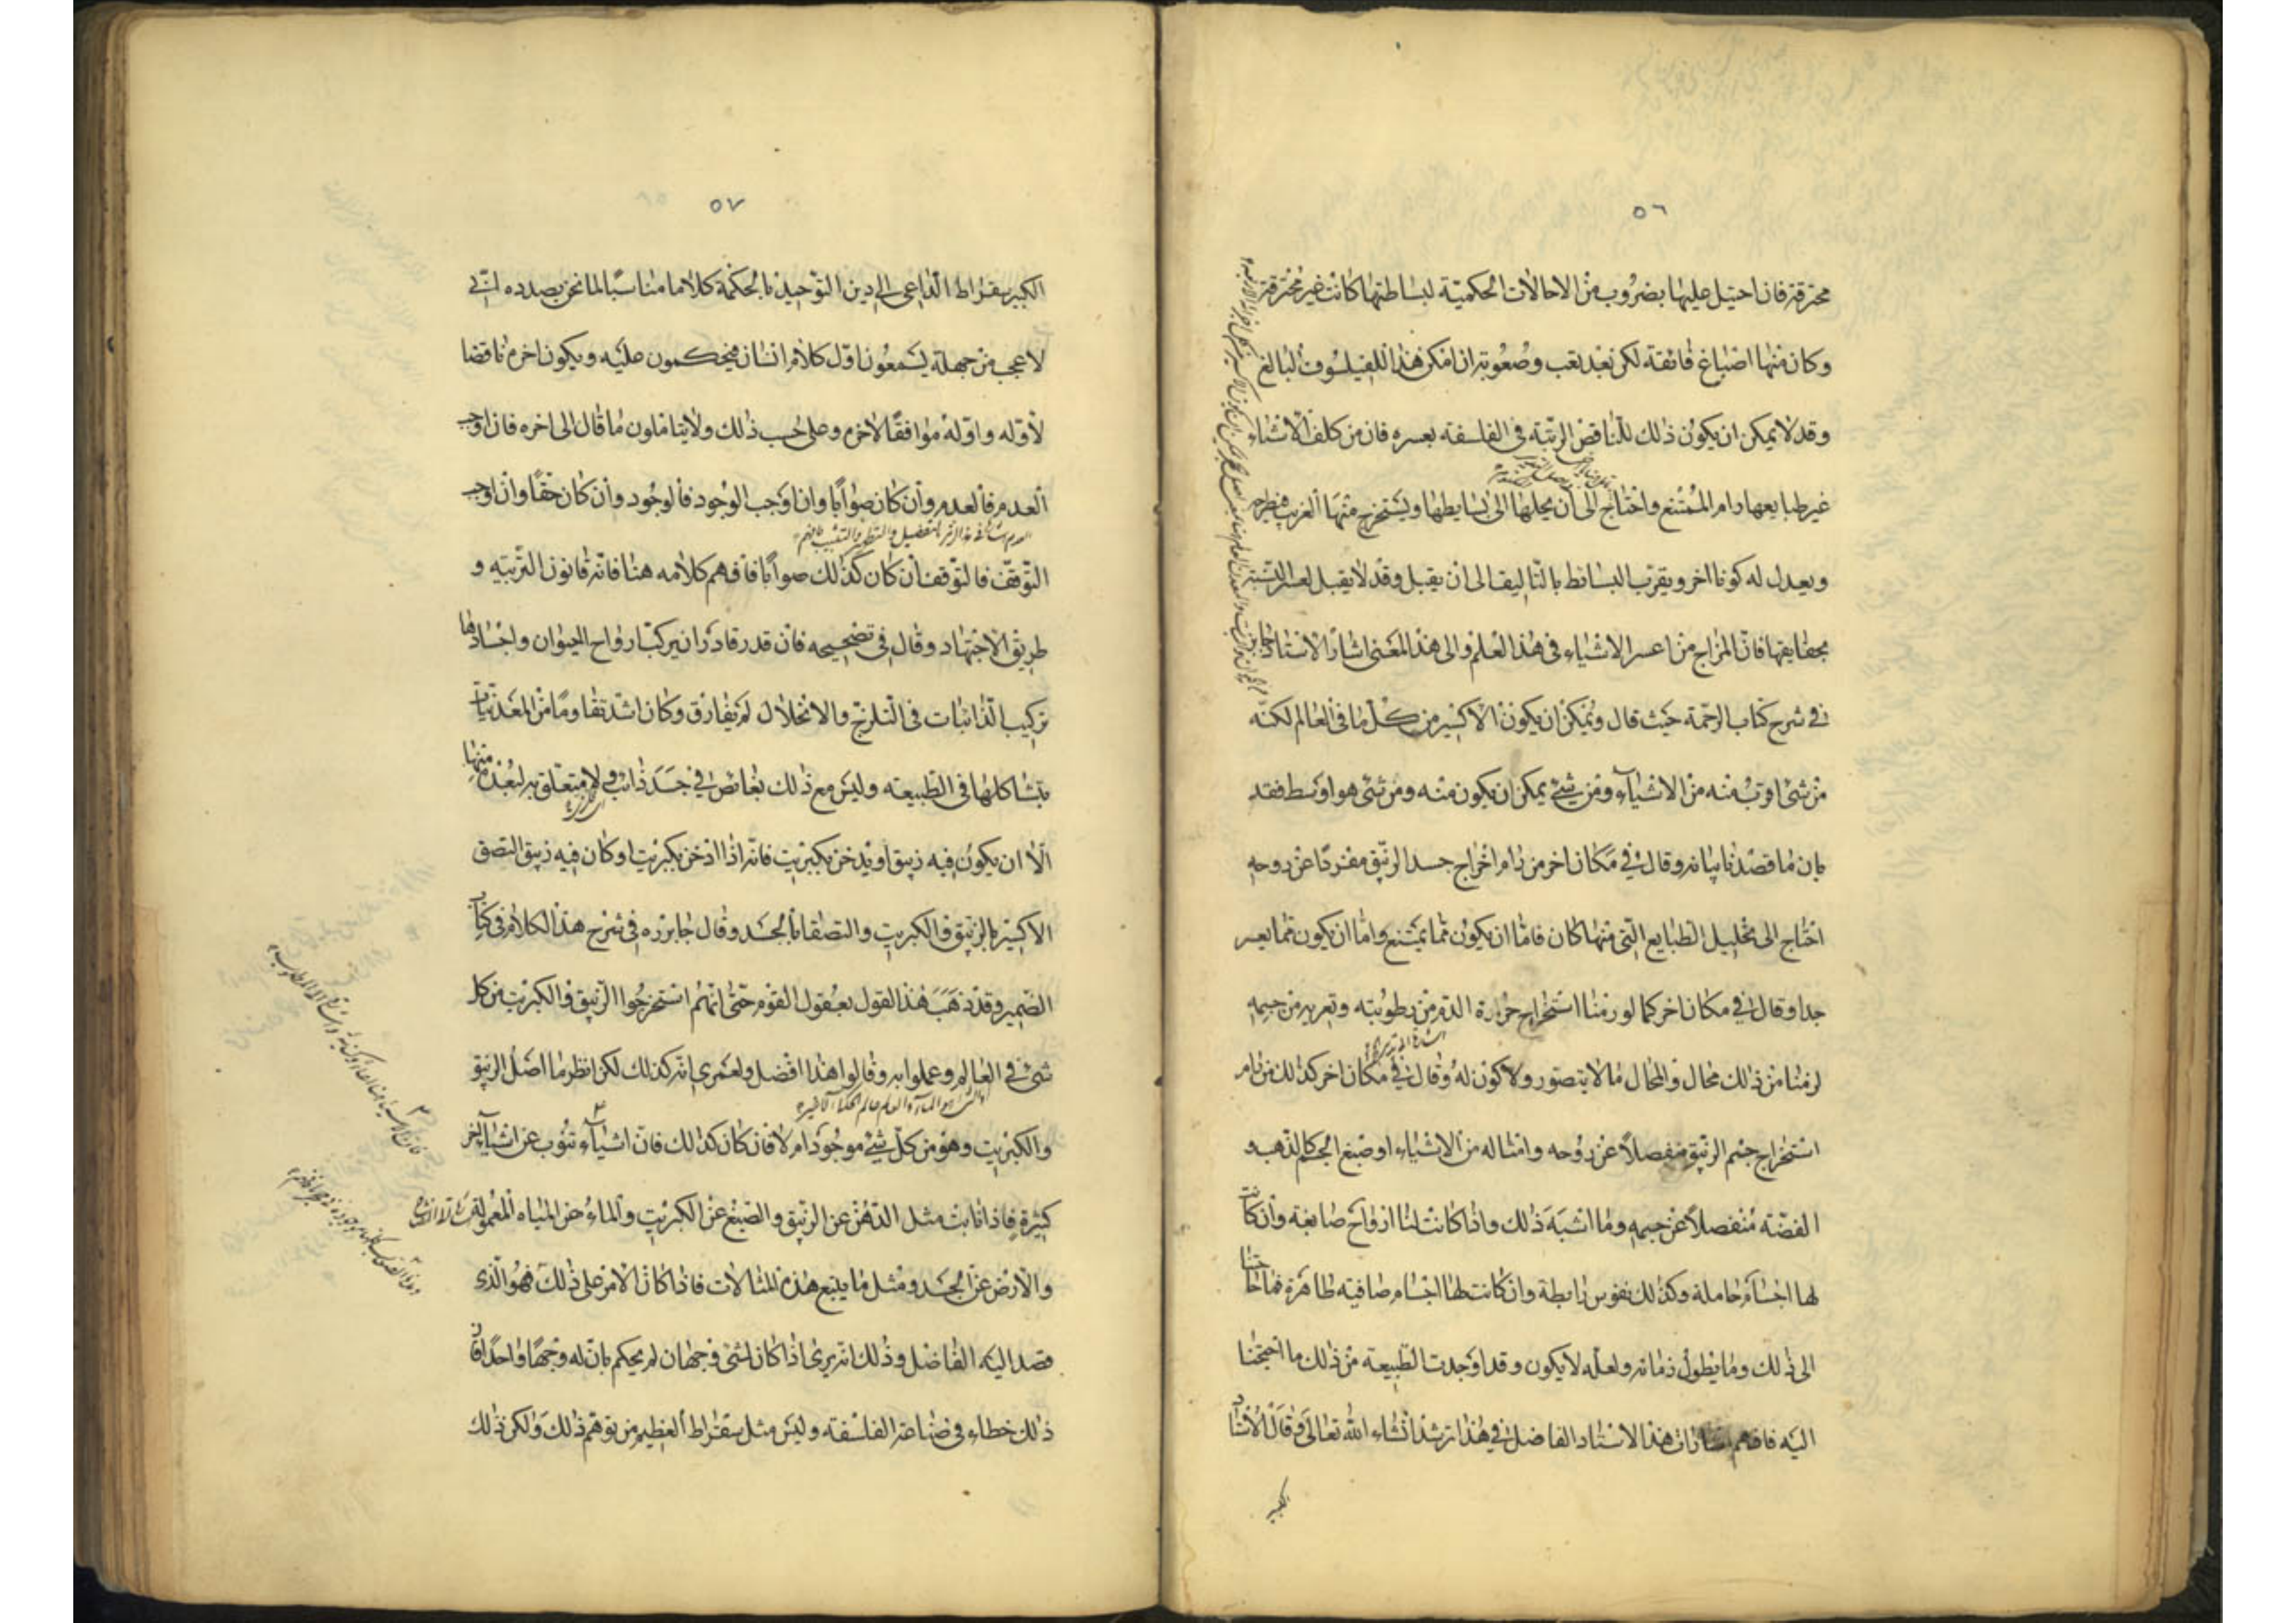 ٥٦
محترقة فان احتيل عليها بضروب من الاحالات الحكمية لبساطتها كانت غير محترقة
وكان منها اصباغ فائقة لكن بعد تعب وصعوبة ان امكن هذا للفيلسوف البالغ
وقد لا يمكن ان يكون ذلك للناقص الرتبة في الفلسفة بعسره فان من كلف الاشياء
غير طبايعها رام الممتنع واحتاج الى ان يحلها الى بسايطها ويستخرج منها الغريب فيطرحه
ويعدل له كونا اخر ويقرب البسائط بالتاليف الى ان يقبل وقد لا يقبل لعسر النسبة
بحقايقها فان المزاج من اعسر الاشياء في هذا العلم والى هذا المعنى اشار الاستاد جابر
في شرح كتاب الرحمة حيث قال ويمكن ان يكون الاكسير من كل ما في العالم لكنه
من شئ اقرب منه من الاشياء ومن شئ يمكن ان يكون منه ومن شئ هو اوسط فقد
بان ما قصدنا بيانه وقال في مكان اخر من رام اخراج جسد الزئبق مفردا عن روحه
احتاج الى تحليل الطبايع التي منها كان فاما ان يكون مما يمتنع واما ان يكون مما يعسر
جدا وقال في مكان اخر كما لو رمنا استخراج حرارة الدم من رطوبته وتعريه من جسمه
لرمنا من ذلك محال والمحال ما لا يتصور ولا كون له وقال في مكان اخر كذلك من رام
استخراج جسم الزئبق منفصلا عن روحه وامثاله من الاشياء او صبغ الحجر كالذهب و
الفضة منفصلا عن جسمه وما اشبه ذلك واذا كانت لنا ارواح صابغة وان كانت
لها اجسام حاملة وكذلك نفوس رابطة وان كانت لها اجسام صافيه طاهرة فما حاجتنا
الى ذلك وما يطول زمانه ولعله لا يكون وقد اوجدت الطبيعة من ذلك ما احتجنا
اليه فافهم اشارات هذا الاستاد الفاضل في هذا ترشد انشاء الله تعالى وقال الاستاد
الكبير
٥٧
الكبير سقراط الداعي الى دين التوحيد بالحكمة كلاما مناسبا لما نحن بصدده اني
لا عجب من جهلة يسمعون اول كلام انسان فيحكمون عليه ويكون اخره ناقضا
لاوله واوله موافقا لاخره وعلى حسب ذلك ولا يتاملون ما قال الى اخره فان اوجب
العدم فالعدم وان كان صوابا وان اوجب الوجود فالوجود وان كان حقا وان اوجب
التوقف فالتوقف ان كان كذلك صوابا فافهم كلامه هنا فانه قانون التربية و
طريق الاجتهاد وقال في تصحيحه فان قدر قادر ان يركب ارواح الحيوان واجسادها
تركيب الذائبات في التلزج والانحلال لم يفارق وكان اشد تقاوما من المعدنيات
بتشاكلها في الطبيعة وليس مع ذلك بغائص في جسد ذائب ولا متعلق به لبعده منها
الا ان يكون فيه زيبق او يدخن بكبريت فانه اذا ادخن بكبريت او كان فيه زيبق التصق
الاكسير بالزيبق والكبريت والتصقا بالجسد وقال جابر ره في شرح هذا الكلام في كتاب
الضمير وقد ذهب هذا القول بعقول القوم حتى انهم استخرجوا الزيبق والكبريت من كل
شئ في العالم وعملوا به وقالوا هذا افضل ولعمري انه كذلك لكن انظر ما اصل الزيبق
والكبريت وهو من كل شئ موجود ام لا فان كان كذلك فان اشياء تنوب عن اشياء اخر
كثيرة فاذا نابت مثل الدهن عن الزيبق والصبغ عن الكبريت والماء عن المياه المعمولة
والارض عن الجسد ومثل ما يتبع هذه المثالات فاذا كان الامر على ذلك فهو الذي
قصد اليه الفاضل وذلك انه يرى اذا كان لشئ وجهان لم يحكم بان له وجها واحدا فان
ذلك خطاء في صناعة الفلسفة وليس مثل سقراط العظيم من توهم ذلك ولكن ذلك